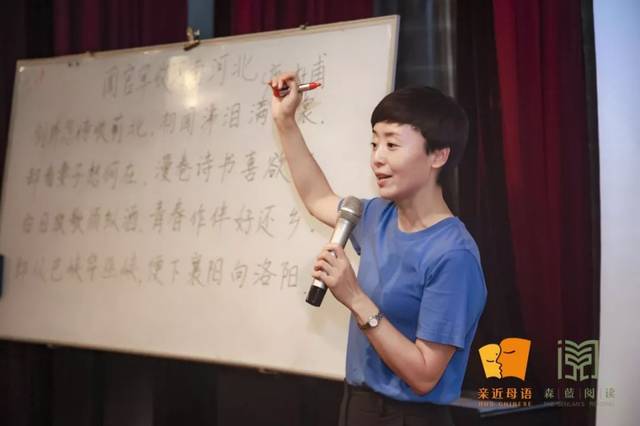 闻官军收 河北 甫
剑外忽传收蓟北，初闻涕泪满 裳，
却看妻子愁何在，漫卷诗书喜欲
白日放歌须纵酒，青春作伴好还乡
即从巴峡穿巫峡，便下襄阳向洛阳．
亲近母语
阅
森|蓝|阅|读